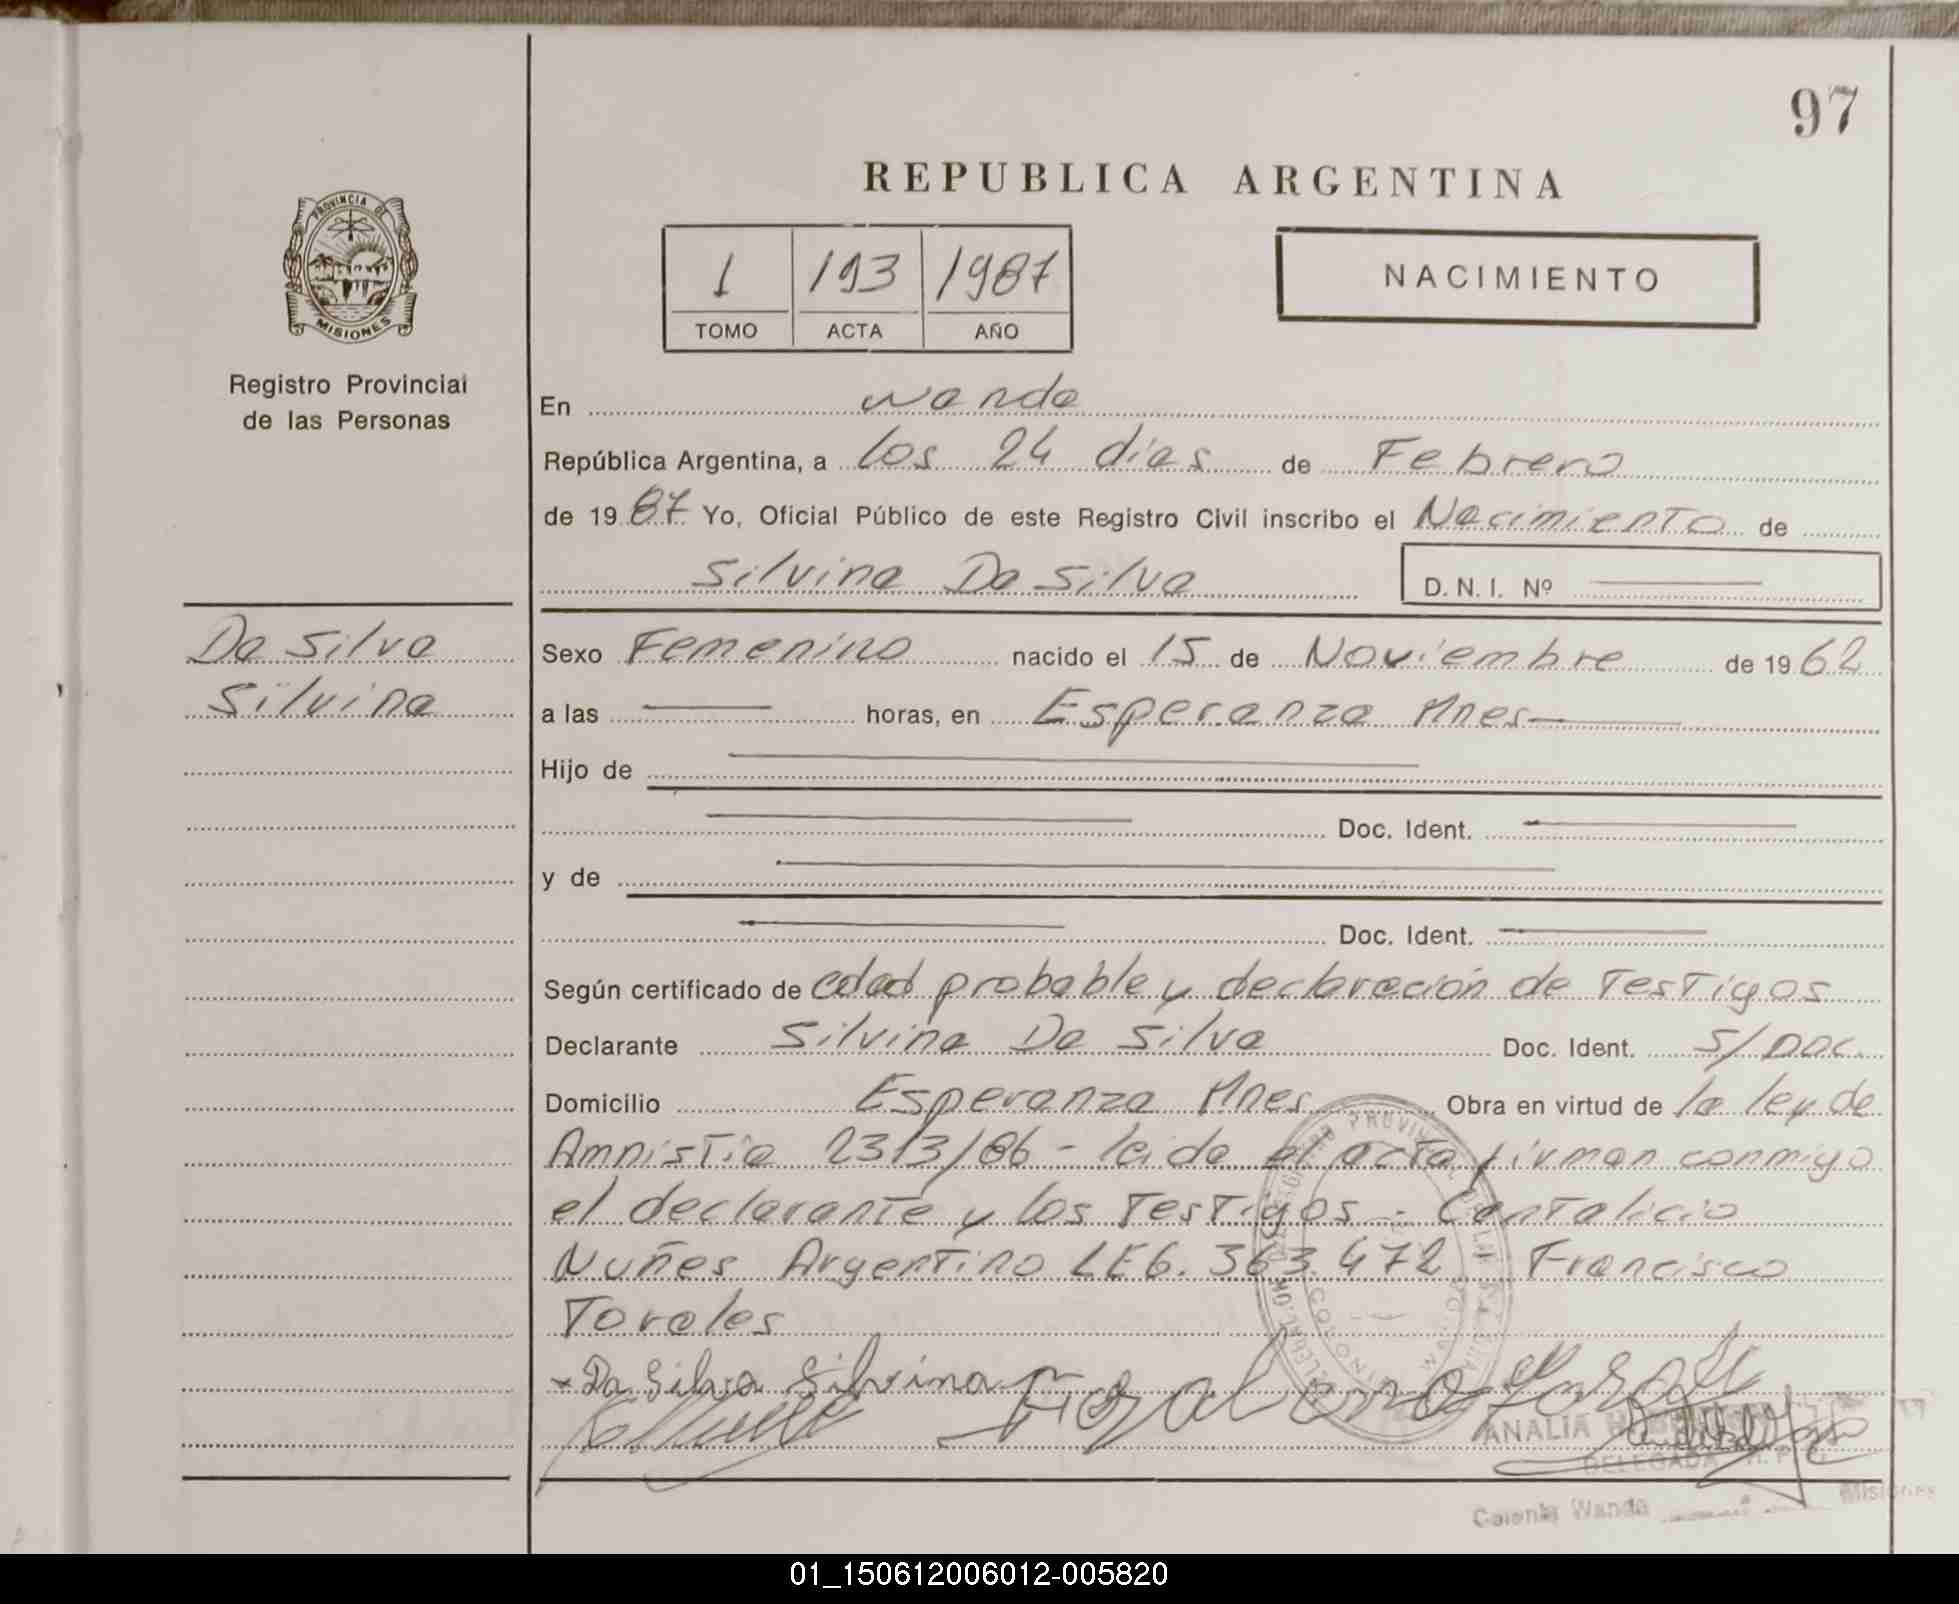 97
REPUBLICA ARGENTINA
PROVINCIA DE
MISIONES
1 193 1987
TOMO ACTA AÑO
NACIMIENTO
Registro Provincial
de las Personas
En wanda
República Argentina, a los 24 días de Febrero
de 19 87 Yo, Oficial Público de este Registro Civil inscribo el Nacimiento de
Silvina Da Silva D. N. I. Nº
Da Silva
Silvina
Sexo Femenino nacido el 15 de Noviembre de 19 62
a las horas, en Esperanza Mnes
Hijo de
Doc. Ident.
y de
Doc. Ident.
Según certificado de edad probable y declaración de Testigos
Declarante Silvina Da Silva Doc. Ident. S/Doc.
Domicilio Esperanza Mnes Obra en virtud de la ley de
Amnistía 2313/86 - leida el acta firman conmigo
el declarante y los Testigos - Cantalicio
Nuñes Argentino LE6. 363.472 Francisco
Torales
Da Silva Silvina
ANALIA
DELEGADA R. P.
Colonia Wanda Misiones
01_150612006012-005820